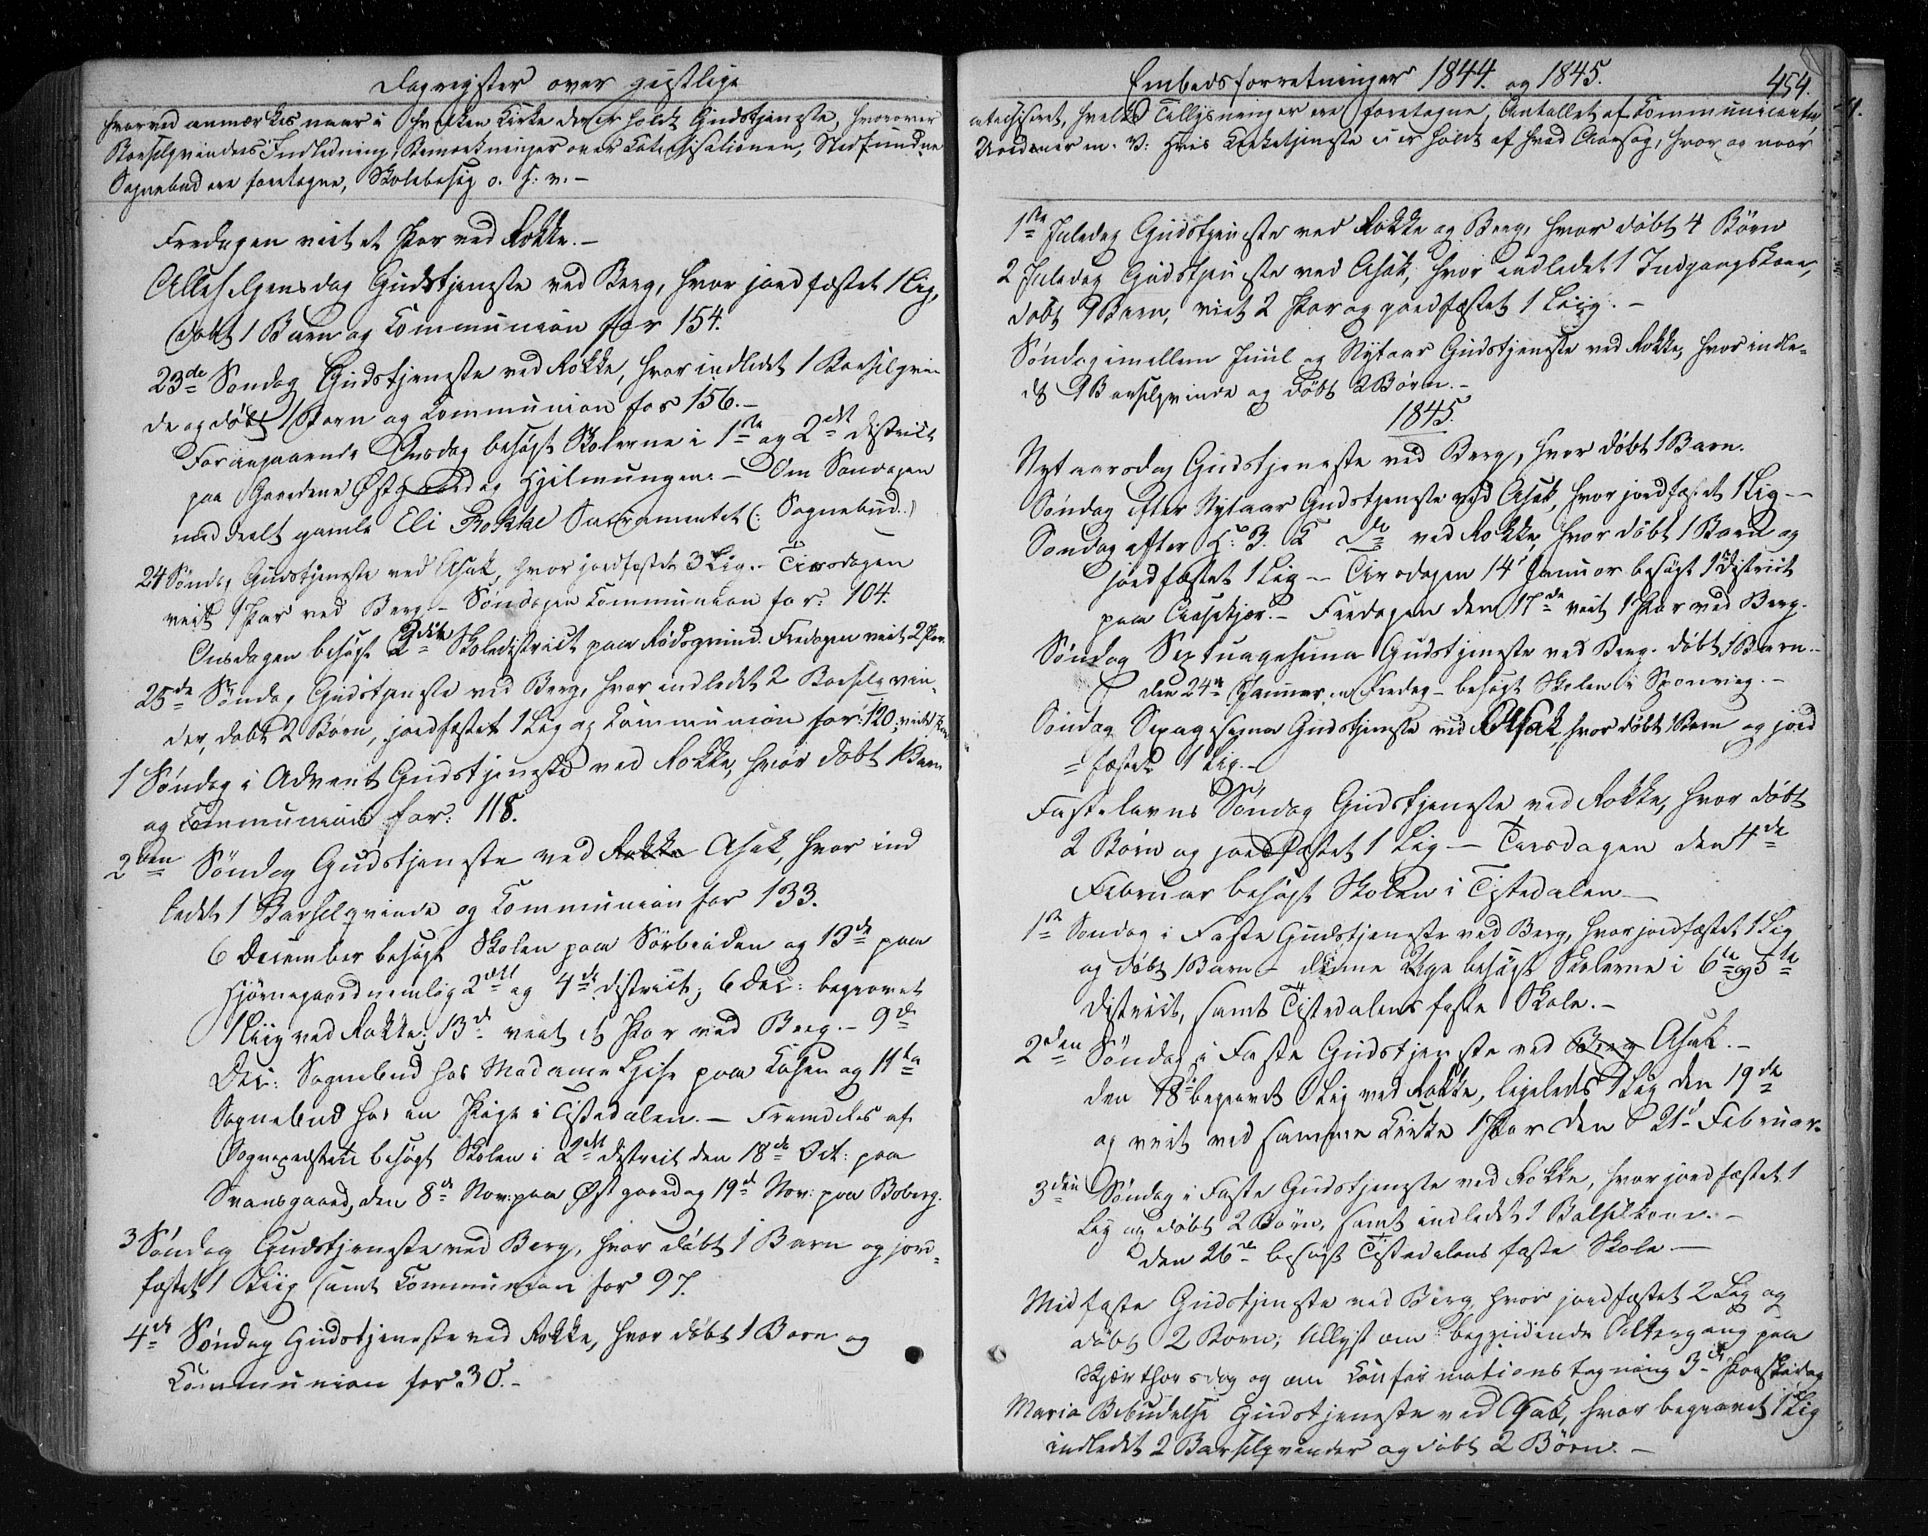 Dagregister over geistlige
hvorved anmærkes naar i hvilken Kirke der er holdt Gudstjeneste, hvorover
Barselqvinders Indledning, Bemærkninger over Catechisationen, Stedfundne
Sognebud ere foretagne, Skolebesøg o. s. v. –
Fredagen viet et Par ved Rokke. –
Allehelgensdag Gudstjeneste ved Berg, hvor jordfæstet 1 Lig,
døbt 1 Barn og Communion for 154.
23de Søndag Gudstjeneste ved Rokke, hvor indledet 1 Barselqvin
de og døbt 1 Barn og Communion for 156. –
Foregaaende Onsdag besøgt Skolerne i 1ste og 2det District
paa Gaardene Østgaard og Hjelmungen. – Om Søndagen
meddeelt gamle Eli Rokke Sacramentet (: Sognebud :)
24 Søndag Gudstjeneste ved Asak, hvor jordfæstet 3 Lig. – Tirsdagen
viet 1 Par ved Berg – Søndagen Communion for: 104.
Onsdagen besøgt 2det Skoledistrict paa Rødsgrind. Fredagen viet 2 Par.
25de Søndag Gudstjeneste ved Berg, hvor indledet 2 Barselqvin-
der, døbt 2 Børn, jordfæstet 1 Lig og Communion for: 120, viet 1 Par
1 Søndag i Advent Gudstjeneste ved Rokke, hvor døbt 1 Barn
og Communion for: 118.
2den Søndag Gudstjeneste ved Rokke Asak, hvor ind
ledet 1 Barselqvinde og Communion for 133.
6 December besøgt Skolen paa Sørbrøden og 13de paa
Hjørnegaard nemlig 2det og 4de District; 6 Dec: begravet
1 Liig ved Rokke; 13de viet et Par ved Berg. – 9de
Dec: Sognebud hos Madame paa og 11te
Sognebud hos en Pige i Tistedalen. – Fremdeles af
Sognepræsten besøgt Skolen i 2det District den 18de Oct: paa
Svansgaard, den 8de Nov: paa Østgaard og 19de Nov: paa Boberg.
3 Søndag Gudstjeneste ved Berg, hvor døbt 1 Barn og jord-
fæstet 1 Liig samt Communion for 97.
4de Søndag Gudstjeneste ved Rokke, hvor døbt 1 Barn og
Communion for: 30. –
Embedsforretninger 1844 og 1845. 454.
catechiseret, hvilke Tillysninger ere foretagne, Antallet af Communicanter
Uordener m. V: Hvis Kirketjeneste ei er holdt af hvad Aarsag, hvor og naar
1ste Juledag Gudstjeneste ved Rokke og Berg, hvor døbt 4 Børn
2 Juledag Gudstjeneste ved Asak, hvor indledet 1 Indgangskone,
døbt 1 Barn, viet 2 Par og jordfæstet 1 Liig. –
Søndag imellem Juul og Nytaar Gudstjeneste ved Rokke, hvor indle-
dt 1 Barselqvinde og døbt 2 Børn. –
1845.
Nytaarsdag Gudstjeneste ved Berg, hvor døbt 1 Barn.
Søndag efter Nytaar Gudstjeneste ved Asak, hvor jordfæstet 1 Lig –
Søndag efter H. 3. K. Do ved Rokke, hvor døbt 1 Barn og
jordfæstet 1 Lig – Tirsdagen 14de Januar besøgt 1 District
paa – Fredagen den 17de viet 1 Par ved Berg.
Søndag Septuagesima Gudstjeneste ved Berg. døbt 1 Barn. –
den 24de Januar, en Fredag – besøgt Skolen i Sponvig. –
Søndag Sexagesima Gudstjeneste ved Asak, hvor døbt 1 Barn og jord
= fæstet 1 Lig. –
Fastelavns Søndag Gudstjeneste ved Rokke, hvor døbt
2 Børn og jordfæstet 1 Lig – Tirsdagen den 4de
Februar besøgt Skolen i Tistedalen –
1ste Søndag i Faste Gudstjeneste ved Berg, hvor jordfæstet 1 Lig
og døbt 1 Barn – denne Uge besøgt Skolerne i 6te og 5te
District, samt Tistedalens faste Skole. –
2den Søndag i Faste Gudstjeneste ved Berg Asak. –
den 18de begravet 1 Lig ved Rokke, ligeledes 1 Lig den 19de
og viet ved samme Kirke 1 Par den 21de Februar.
3die Søndag i Faste Gudstjeneste ved Rokke, hvor jordfæstet 1
Lig og døbt 2 Børn, samt indledet 1 Barselkone. –
den 26de besøgt Tistedalens faste Skole –
Midfaste Gudstjeneste ved Berg, hvor jordfæstet 2 Lig og
døbt 2 Børn; tillyst om begyndende Altergang paa
Skjærthorsdag og om Confirmationstegning 3de Paaskedag
Mariæ Bebudelse Gudstjeneste ved Asak, hvor begravet 1 Lig
indledet 2 Barselqvinder og døbt 2 Børn. –